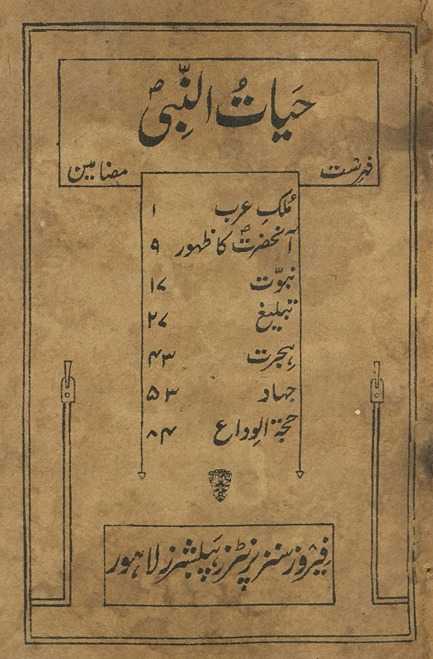 حیاتُ النّبیؐ
فہرست مضامین
مُلکِ عرب ۱
آنحضرتؐ کا ظہور ۹
نبوّت ۱۷
تبلیغ ۲۷
ہجرت ۴۳
جہاد ۵۳
حجۃ الوداع ۸۴
فیروز سنز پرنٹرز پبلشرز لاہور